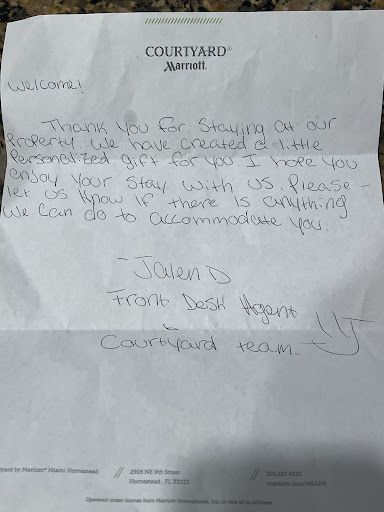 COURTYARD®
Marriott.
Welcome!
Thank you for staying at our
Property. We have created a little
Personalized gift for you I hope you
enjoy your stay with us. Please -
let us know if there is anything
we can do to accommodate you...
- Jalen D
Front Desk Agent
&
Courtyard team -
yard by Marriott® Miami Homestead // 2905 NE 9th Street // 305 257 4322
Homestead, FL 33033 marriott.com/MIAHS
Operated under license from Marriott International, Inc. or one of its affiliates